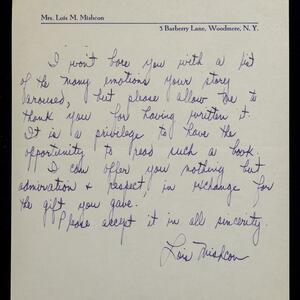 Mrs. Lois M. Mishcon
3 Barberry Lane, Woodmere, N. Y.
I won't bore you with a list
of the many emotions your story
aroused, but please allow me to
thank you for having written it.
It is a privilege to have the
opportunity to read such a book.
I can offer you nothing but
admiration & respect, in exchange for
the gift you gave.
Please accept it in all sincerity.
Lois Mishcon